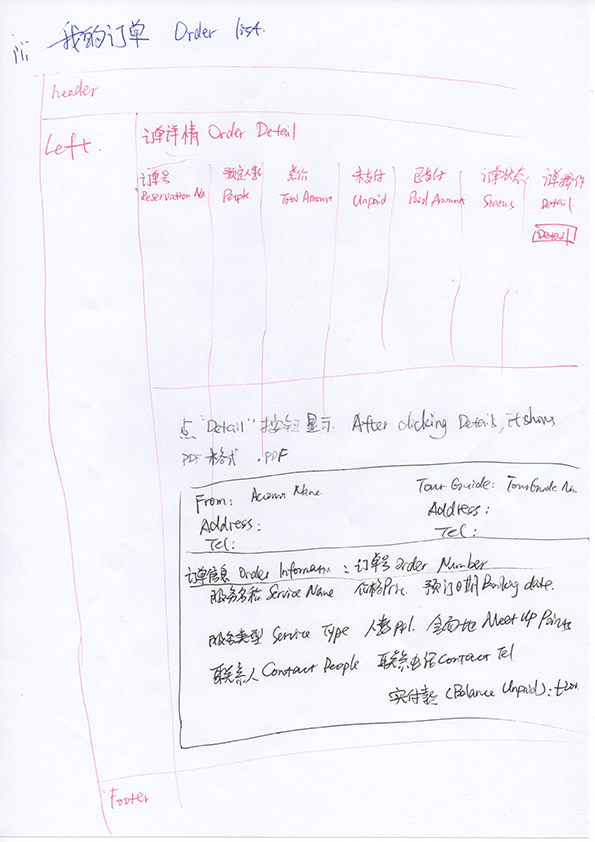 iii 我的订单 Order list.
header
Left.
订单详情 Order Detail
订单号 预定人数 总价 未支付 已支付 订单状态 订单操作
Reservation No People Total Amount Unpaid Paid Amount Status Detail
Detail
点"Detail"按钮显示: After clicking Details, it shows
PDF 格式 .PDF
From: Account Name Tour Guide: TourGuide
Address: Address:
Tel: Tel:
订单信息 Order Information: 订单号 Order Number
服务名称 Service Name 价格Price 预订日期 Booking date.
服务类型 Service Type 人数 ppl. 会面地 Meet Up Points
联系人 Contact People 联系电话 Contact Tel
(Balance Unpaid):
Footer